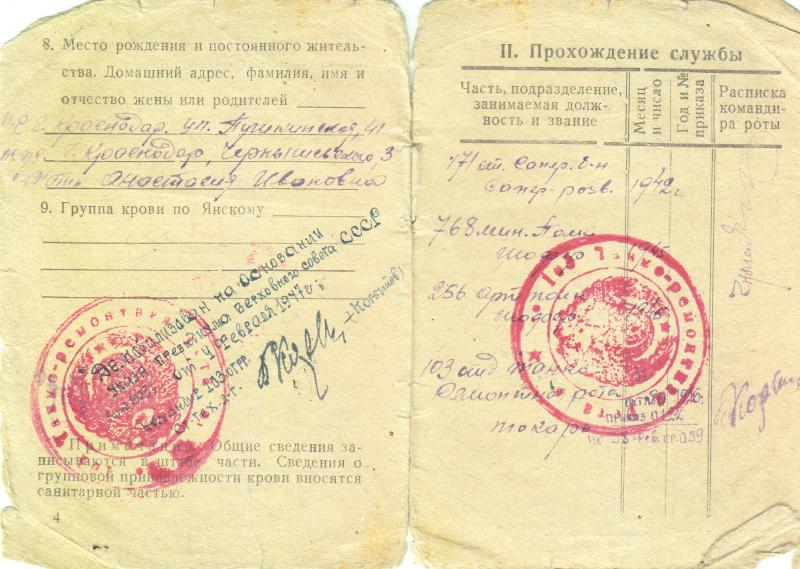 8. Место рождения и постоянного житель-
ства. Домашний адрес, фамилия, имя и
отчество жены или родителей
г. Краснодар. ул. Пушкинская, 41
г. Краснодар, Чернышевского, 3
Анастасия Ивановна
9. Группа крови по Янскому
Демобилизован на основании
Указа Президиума Верховного совета СССР
от 4 Февраля 1947 г.
103 ОТРР
Ст. тех. л-т.
Танко-ремонтная
Примечание: Общие сведения за-
писываются в штабе части. Сведения о
групповой принадлежности крови вносятся
санитарной частью.
4
II. Прохождение службы
Часть, подразделение,
занимаемая долж-
ность и звание
Месяц
и число
Год и №
приказа
Расписка
команди-
ра роты
171 от. Сапер. б-н
Сапер-разв. 1942 г.
768 мин. Полк
256 арт. полк
103 отд танко
Ремонтна рота
токарь
103 Танко-ремонтная
рота